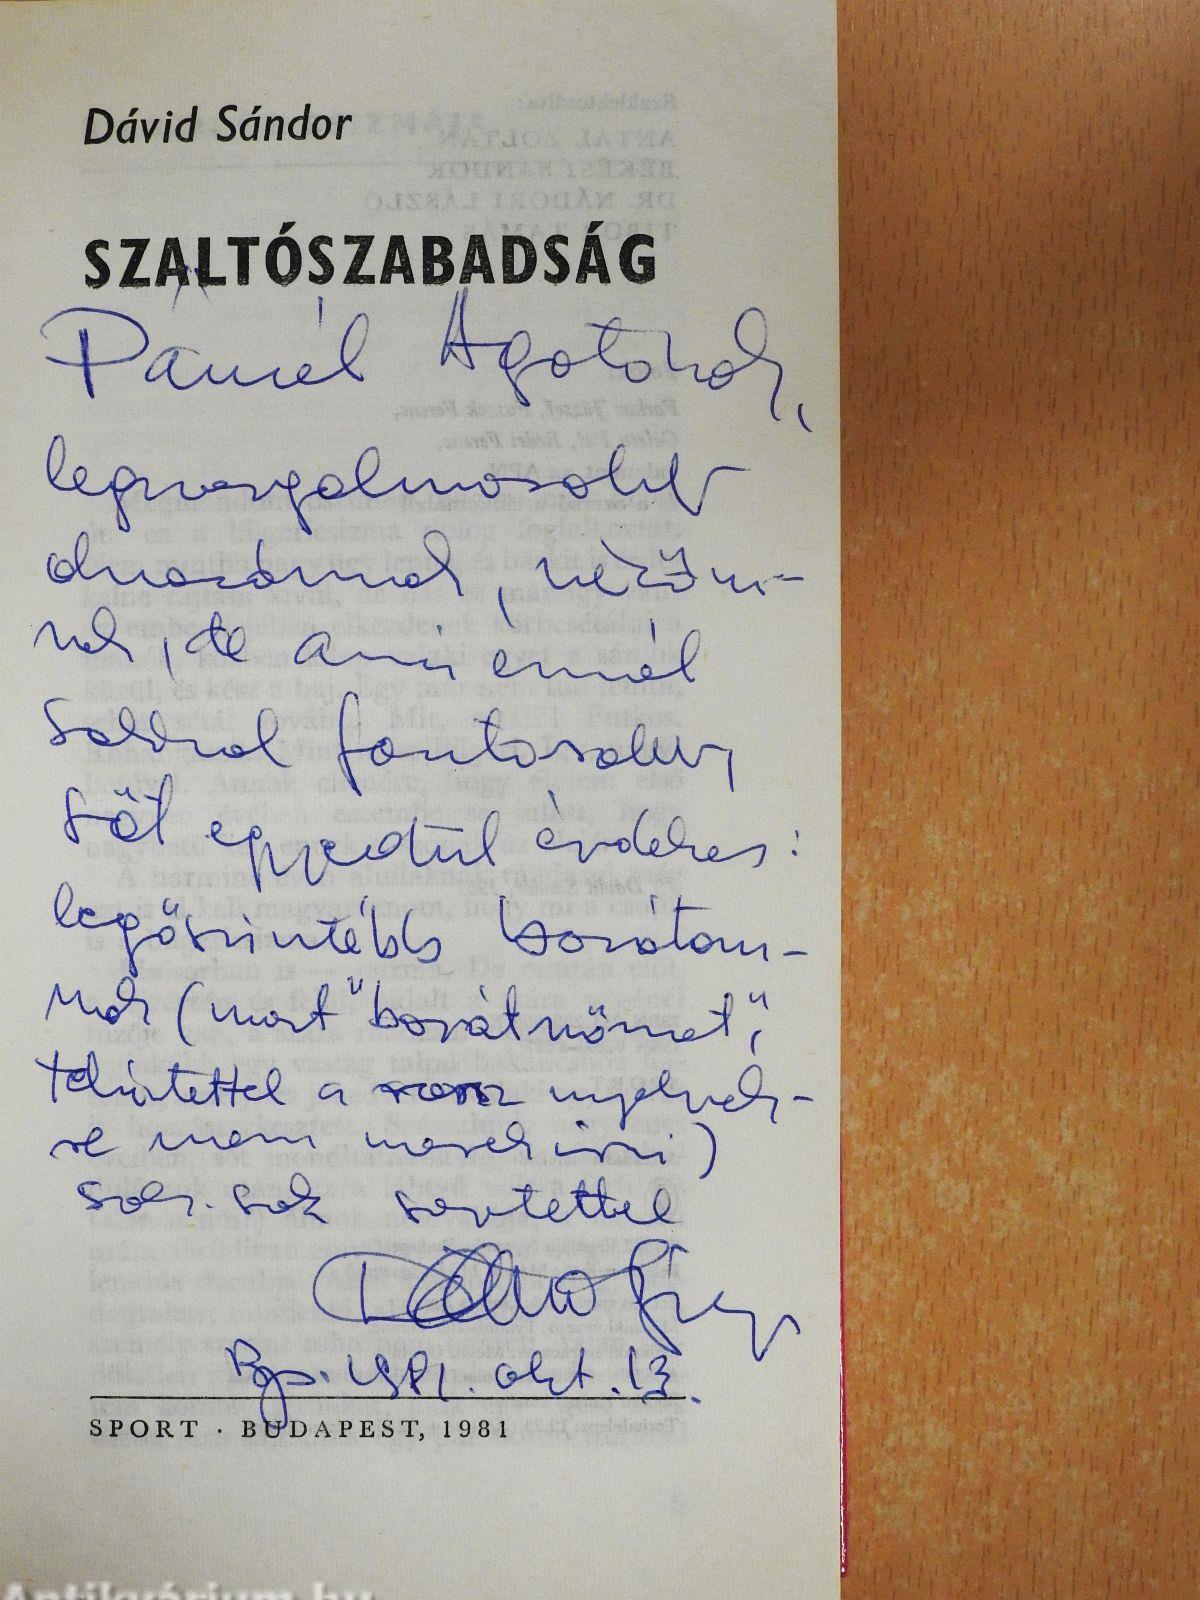 Dávid Sándor
SZALTÓSZABADSÁG
Ágotának,
legszorgalmasabb
olvasómnak, nézőm-
nek, de ami ennél
sokkal fontosabb,
sőt egyedül érdekes:
legőszintébb barátom-
nak (mert "barátnőmet",
tekintettel a rossz nyelvek-
re nem merek írni)
sok-sok szeretettel
Dávid Sándor
Bp. 1981. okt. 13.
SPORT · BUDAPEST, 1981
Antikvárium.hu